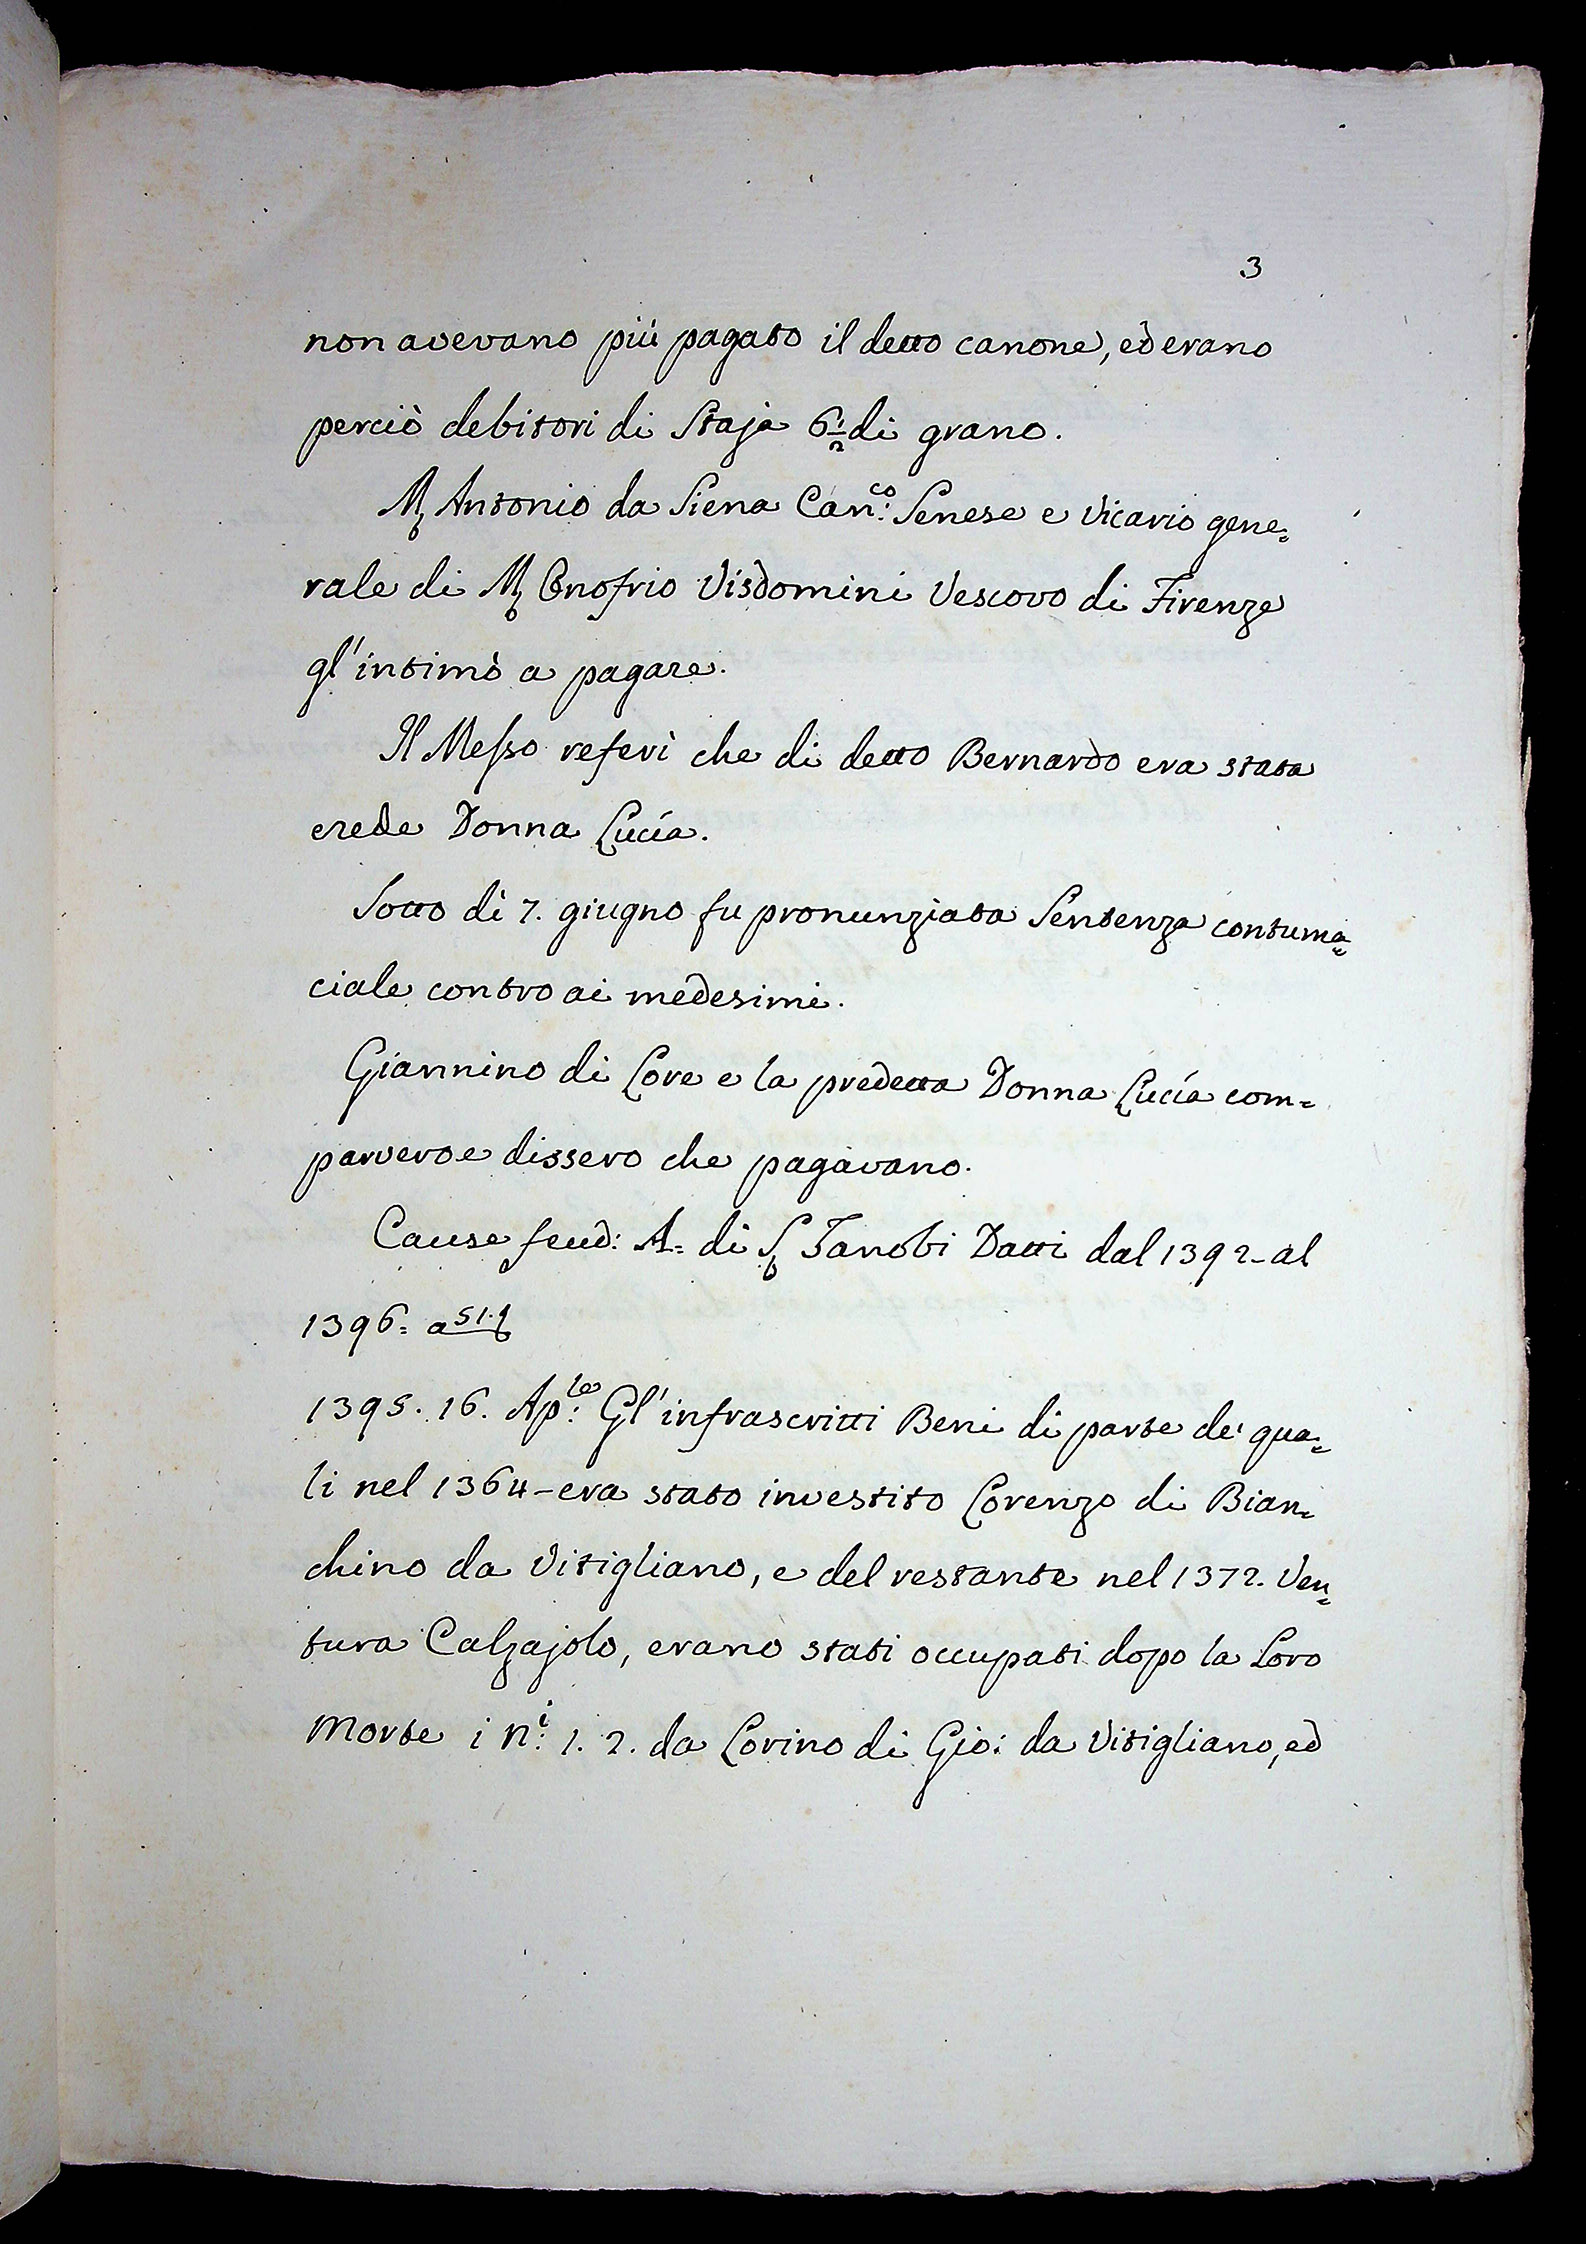 3
non avevano più pagato il detto canone, ed erano
perciò debitori di Staja 6 1/2 di grano.
M. Antonio da Siena Can.co Senese e Vicario gene=
rale di M. Onofrio Visdomini Vescovo di Firenze
gl'intimò a pagare.
Il Messo referì che di detto Bernardo era stata
erede Donna Lucía.
Sotto dì 7. giugno fu pronunziata Sentenza contuma=
ciale contro ai medesimi.
Giannino di Lore e la predetta Donna Lucía com=
parvero e dissero che pagavano.
Cause feud: A= di S. Zanobi Datti dal 1392- al
1396= a 51.
1395. 16. Ap:le Gl'infrascritti Beni di parte de' qua=
li nel 1364- era stato investito Lorenzo di Bian=
chino da Vitigliano, e del restante nel 1372. Ven=
tura Calzajolo, erano stati occupati dopo la Loro
Morte i N:i 1. 2. da Lorino di Gio: da Vitigliano, ed